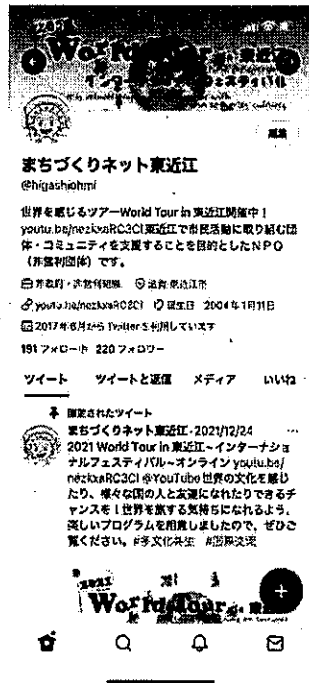 World Tour in 東近江
まちづくりネット東近江
@higashiohmi
世界を感じるツアーWorld Tour in 東近江開催中！
東近江で市民活動に取り組む団
体・コミュニティを支援することを目的としたNPO
（非営利団体）です。
非政府・非営利組織 滋賀 東近江市
誕生日 2004年1月11日
2017年6月から Twitterを利用しています
191 フォロー中 220 フォロワー
ツイート ツイートと返信 メディア いいね
固定されたツイート
まちづくりネット東近江 · 2021/12/24
2021 World Tour in 東近江～インターナショ
ナルフェスティバル～オンライン youtu.be/
@YouTube 世界の文化を感じ
たり、様々な国の人と友達になれたりできるチ
ャンスを！世界を旅する気持ちになれるよう、
楽しいプログラムを用意しましたので、ぜひご
覧ください。 #多文化共生 #国際交流
2021
World Tour in 東近江